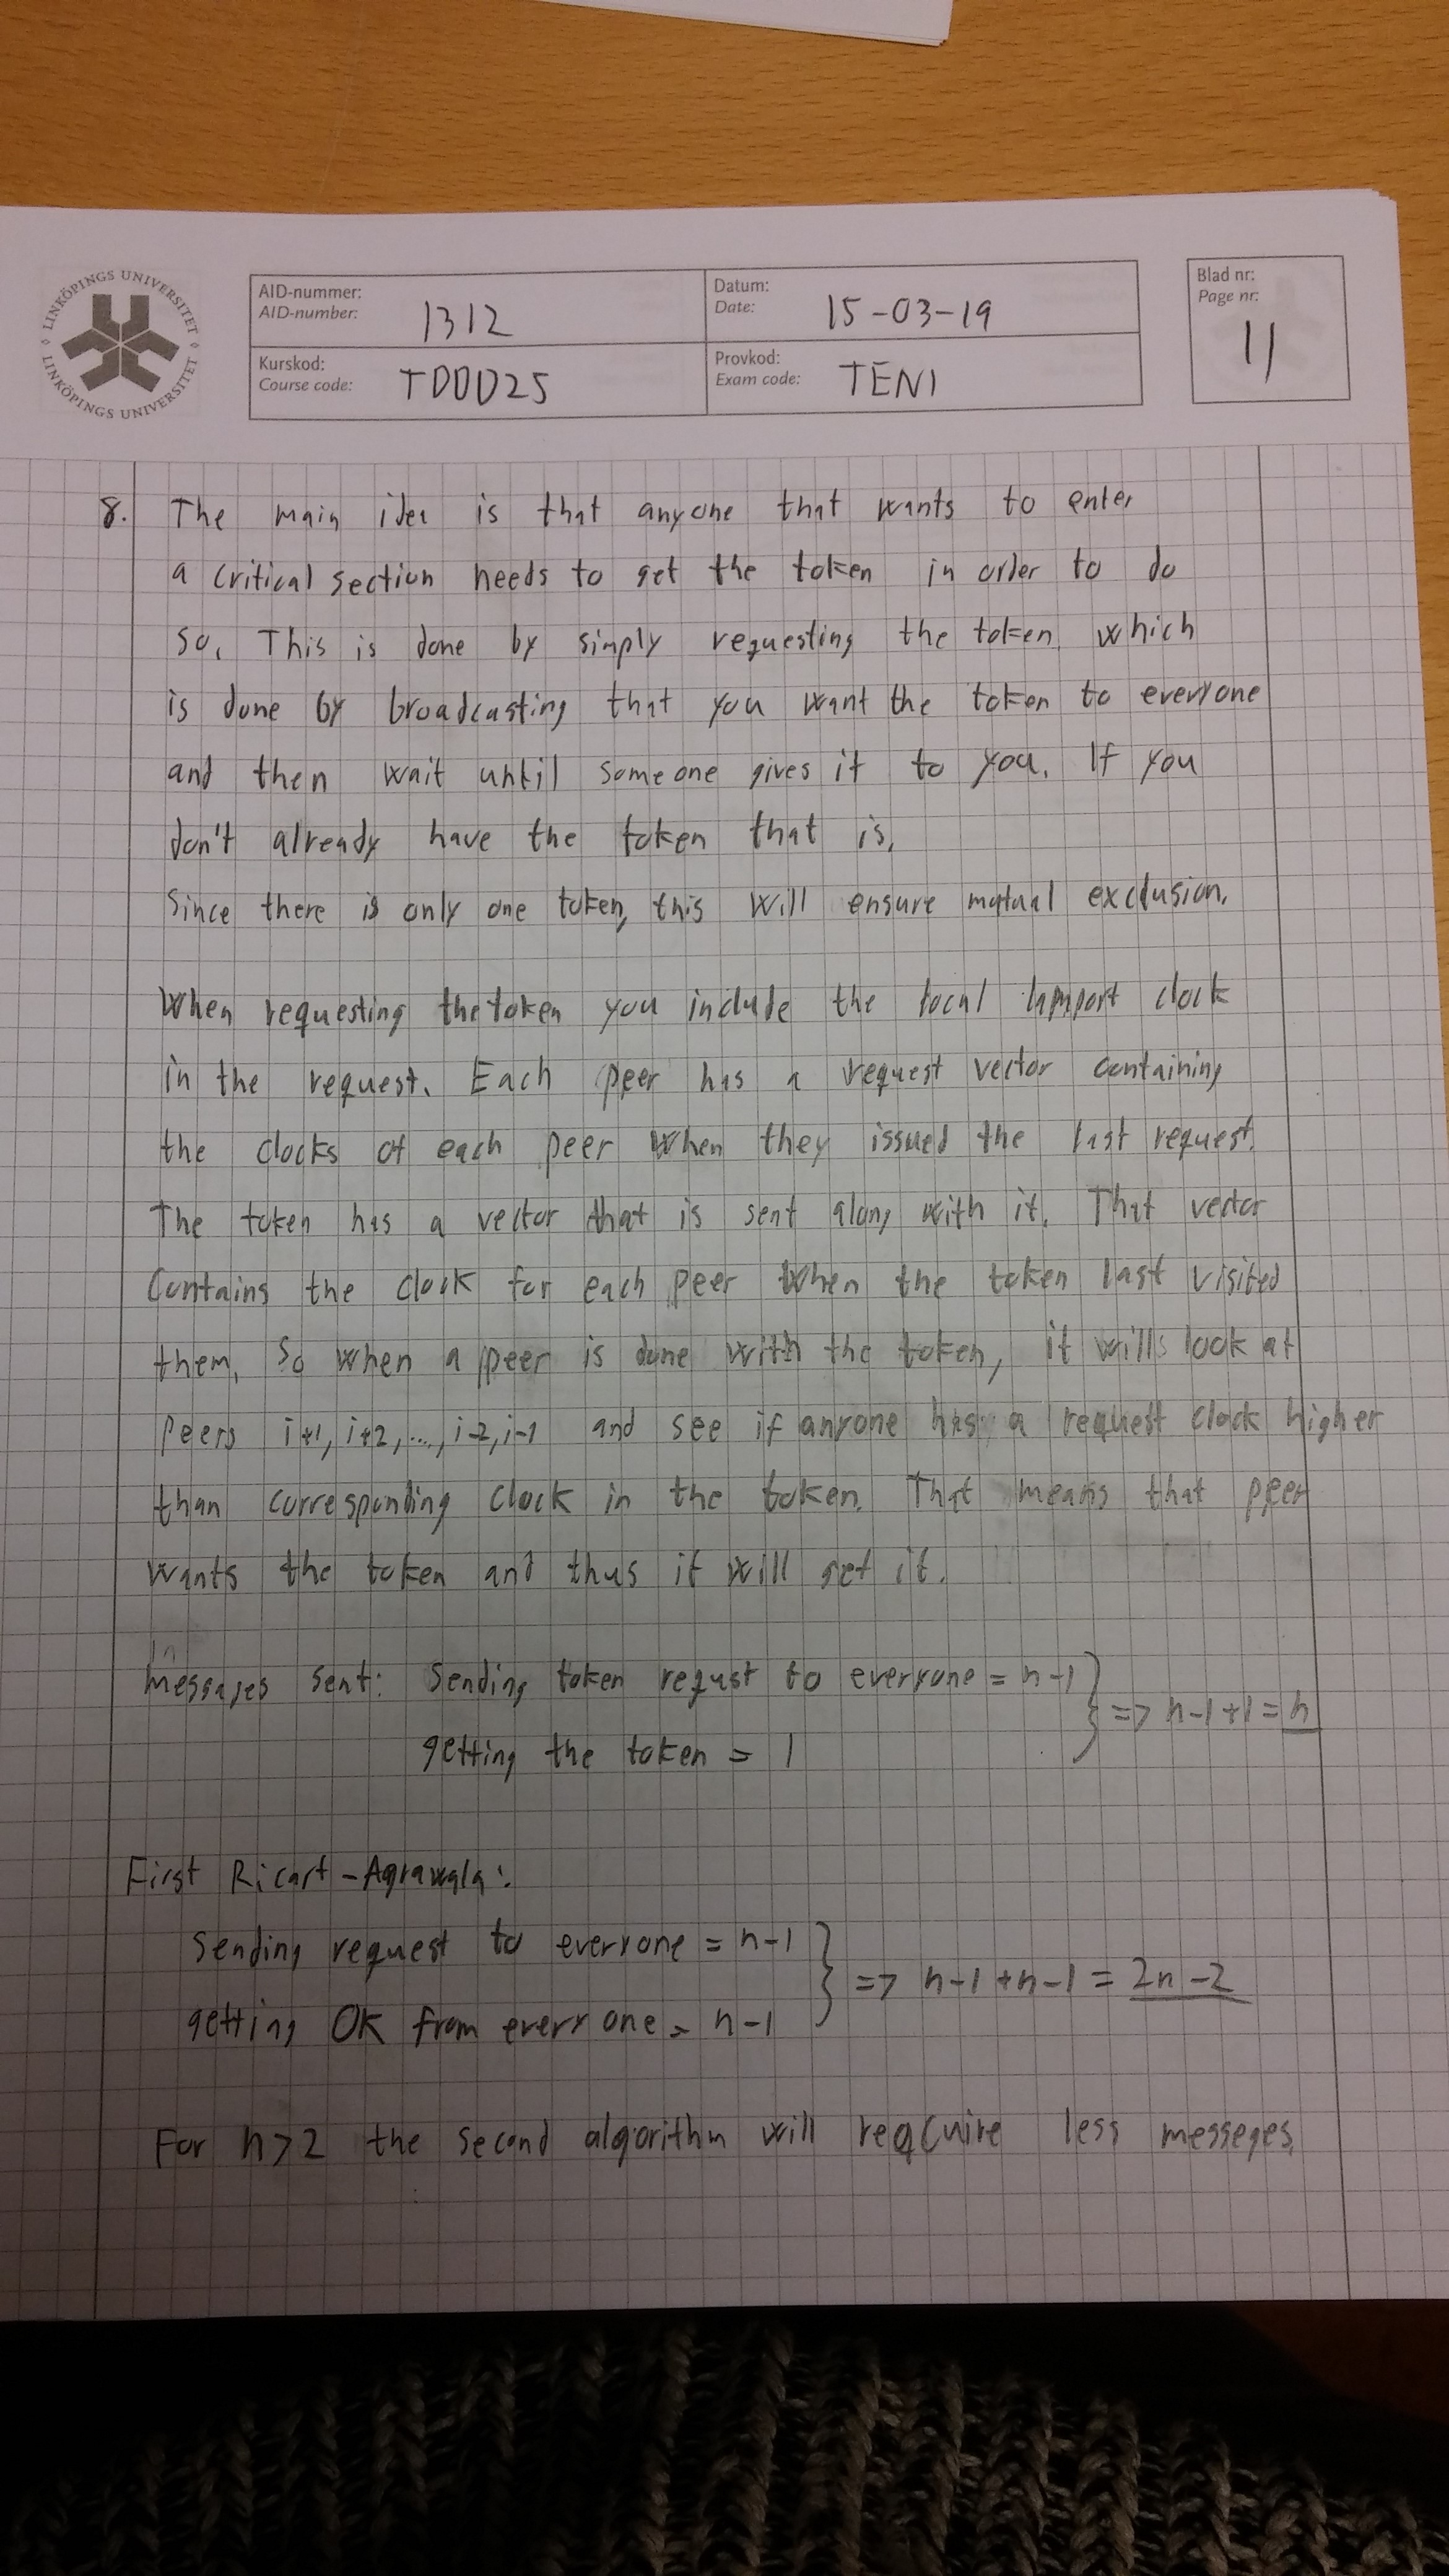 LINKÖPINGS UNIVERSITET
LINKÖPINGS UNIVERSITET
AID-nummer:
AID-number: 1312
Datum:
Date: 15-03-19
Blad nr:
Page nr:
11
Kurskod:
Course code: TDDD25
Provkod:
Exam code: TEN1
8. The main idea is that anyone that wants to enter
a critical section needs to get the token in order to do
so. This is done by simply requesting the token, which
is done by broadcasting that you want the token to everyone
and then wait until someone gives it to you. If you
don't already have the token that is.
Since there is only one token, this will ensure mutual exclusion.
When requesting the token you include the local lamport clock
in the request. Each peer has a request vector containing
the clocks of each peer when they issued the last request.
The token has a vector that is sent along with it. That vector
contains the clock for each peer when the token last visited
them. So when a peer is done with the token, it wills look at
peers i+1, i+2, ..., i-2, i-1 and see if anyone has a request clock higher
than corresponding clock in the token. That means that peer
wants the token and thus it will get it.
Messages sent: Sending token requst to everyone = n-1 } => n-1+1 = n
getting the token = 1
First Ricart-Agrawala:
Sending request to everyone = n-1 } => n-1+n-1 = 2n-2
getting OK from everyone = n-1
For n>2 the second algorithm will reqcuire less messeges.